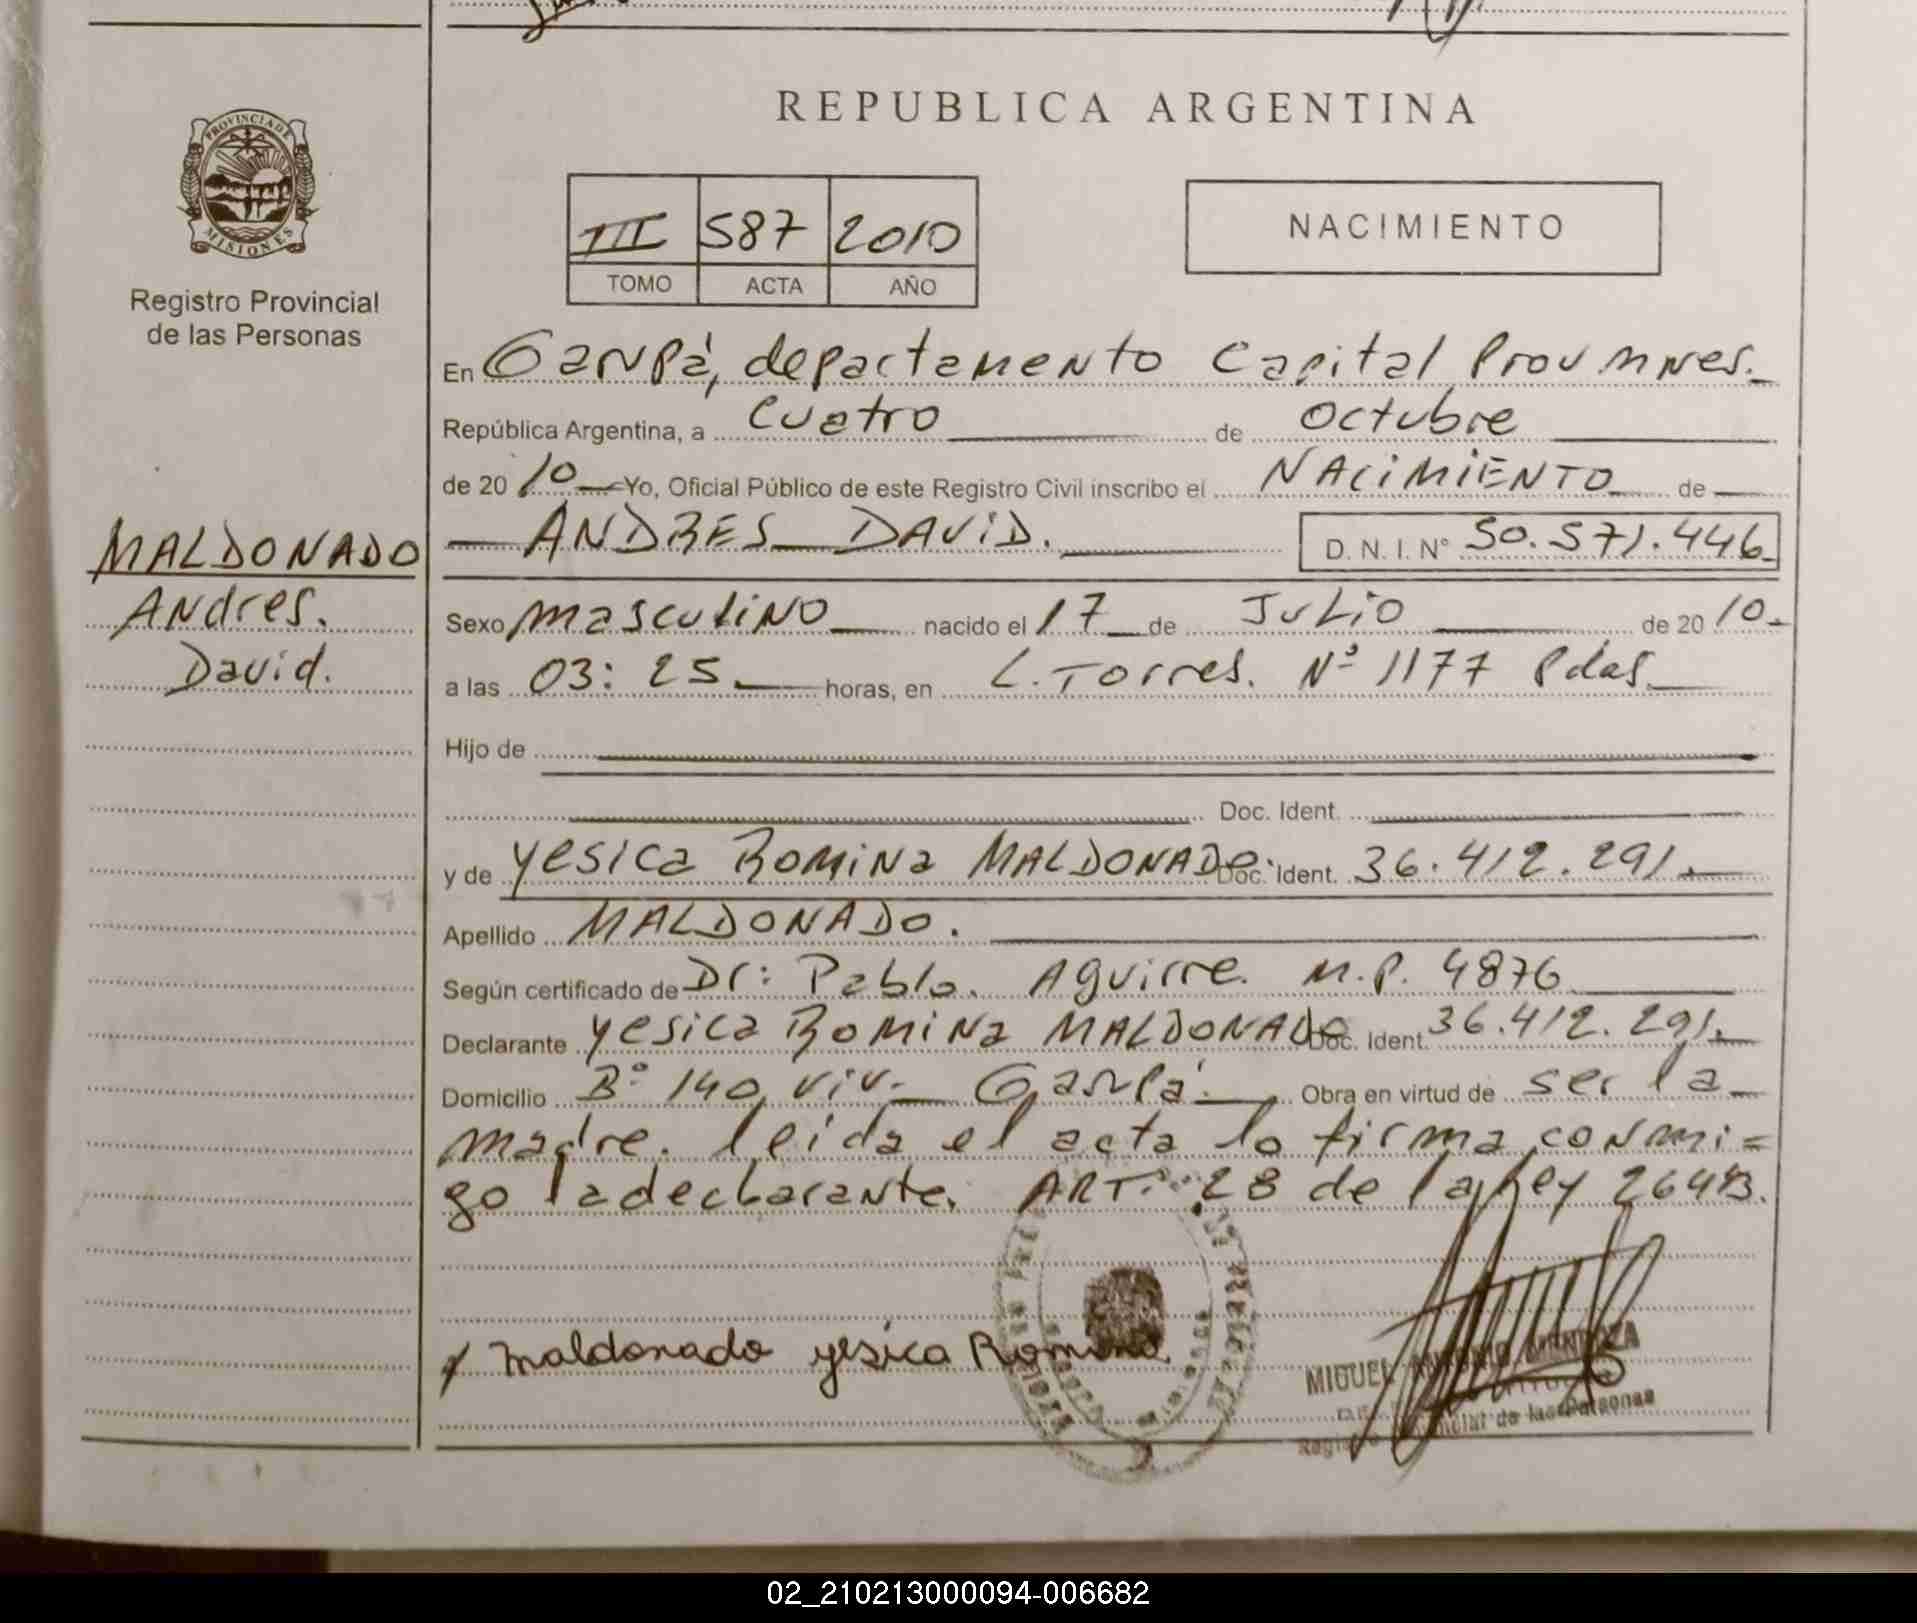 REPUBLICA ARGENTINA
PROVINCIA DE
MISIONES
Registro Provincial
de las Personas
III 587 2010
TOMO ACTA AÑO
NACIMIENTO
En Garupá, departamento Capital Prov Mnes.
República Argentina, a cuatro de octubre
de 2010 Yo, Oficial Público de este Registro Civil inscribo el NACIMIENTO de
ANDRES DAVID. D. N. I. Nº 50.571.446
MALDONADO
Andres.
David.
Sexo masculino nacido el 17 de Julio de 2010
a las 03:25 horas, en L. Torres. Nº 1177 Pdas.
Hijo de
Doc. Ident.
y de Yesica Romina MALDONADO Doc. Ident. 36.412.291.
Apellido MALDONADO.
Según certificado de Dr: Pablo. Aguirre. M.P. 4876
Declarante Yesica Romina MALDONADO Doc. Ident. 36.412.291.
Domicilio Bº 140 viv. Garupá. Obra en virtud de ser la
madre. leida el acta lo firma conmi=
go la declarante. ART. 28 de la ley 26413.
Maldonado Yesica Romina
MIGUEL ANTONIO MENDOZA
de las Personas
02_210213000094-006682